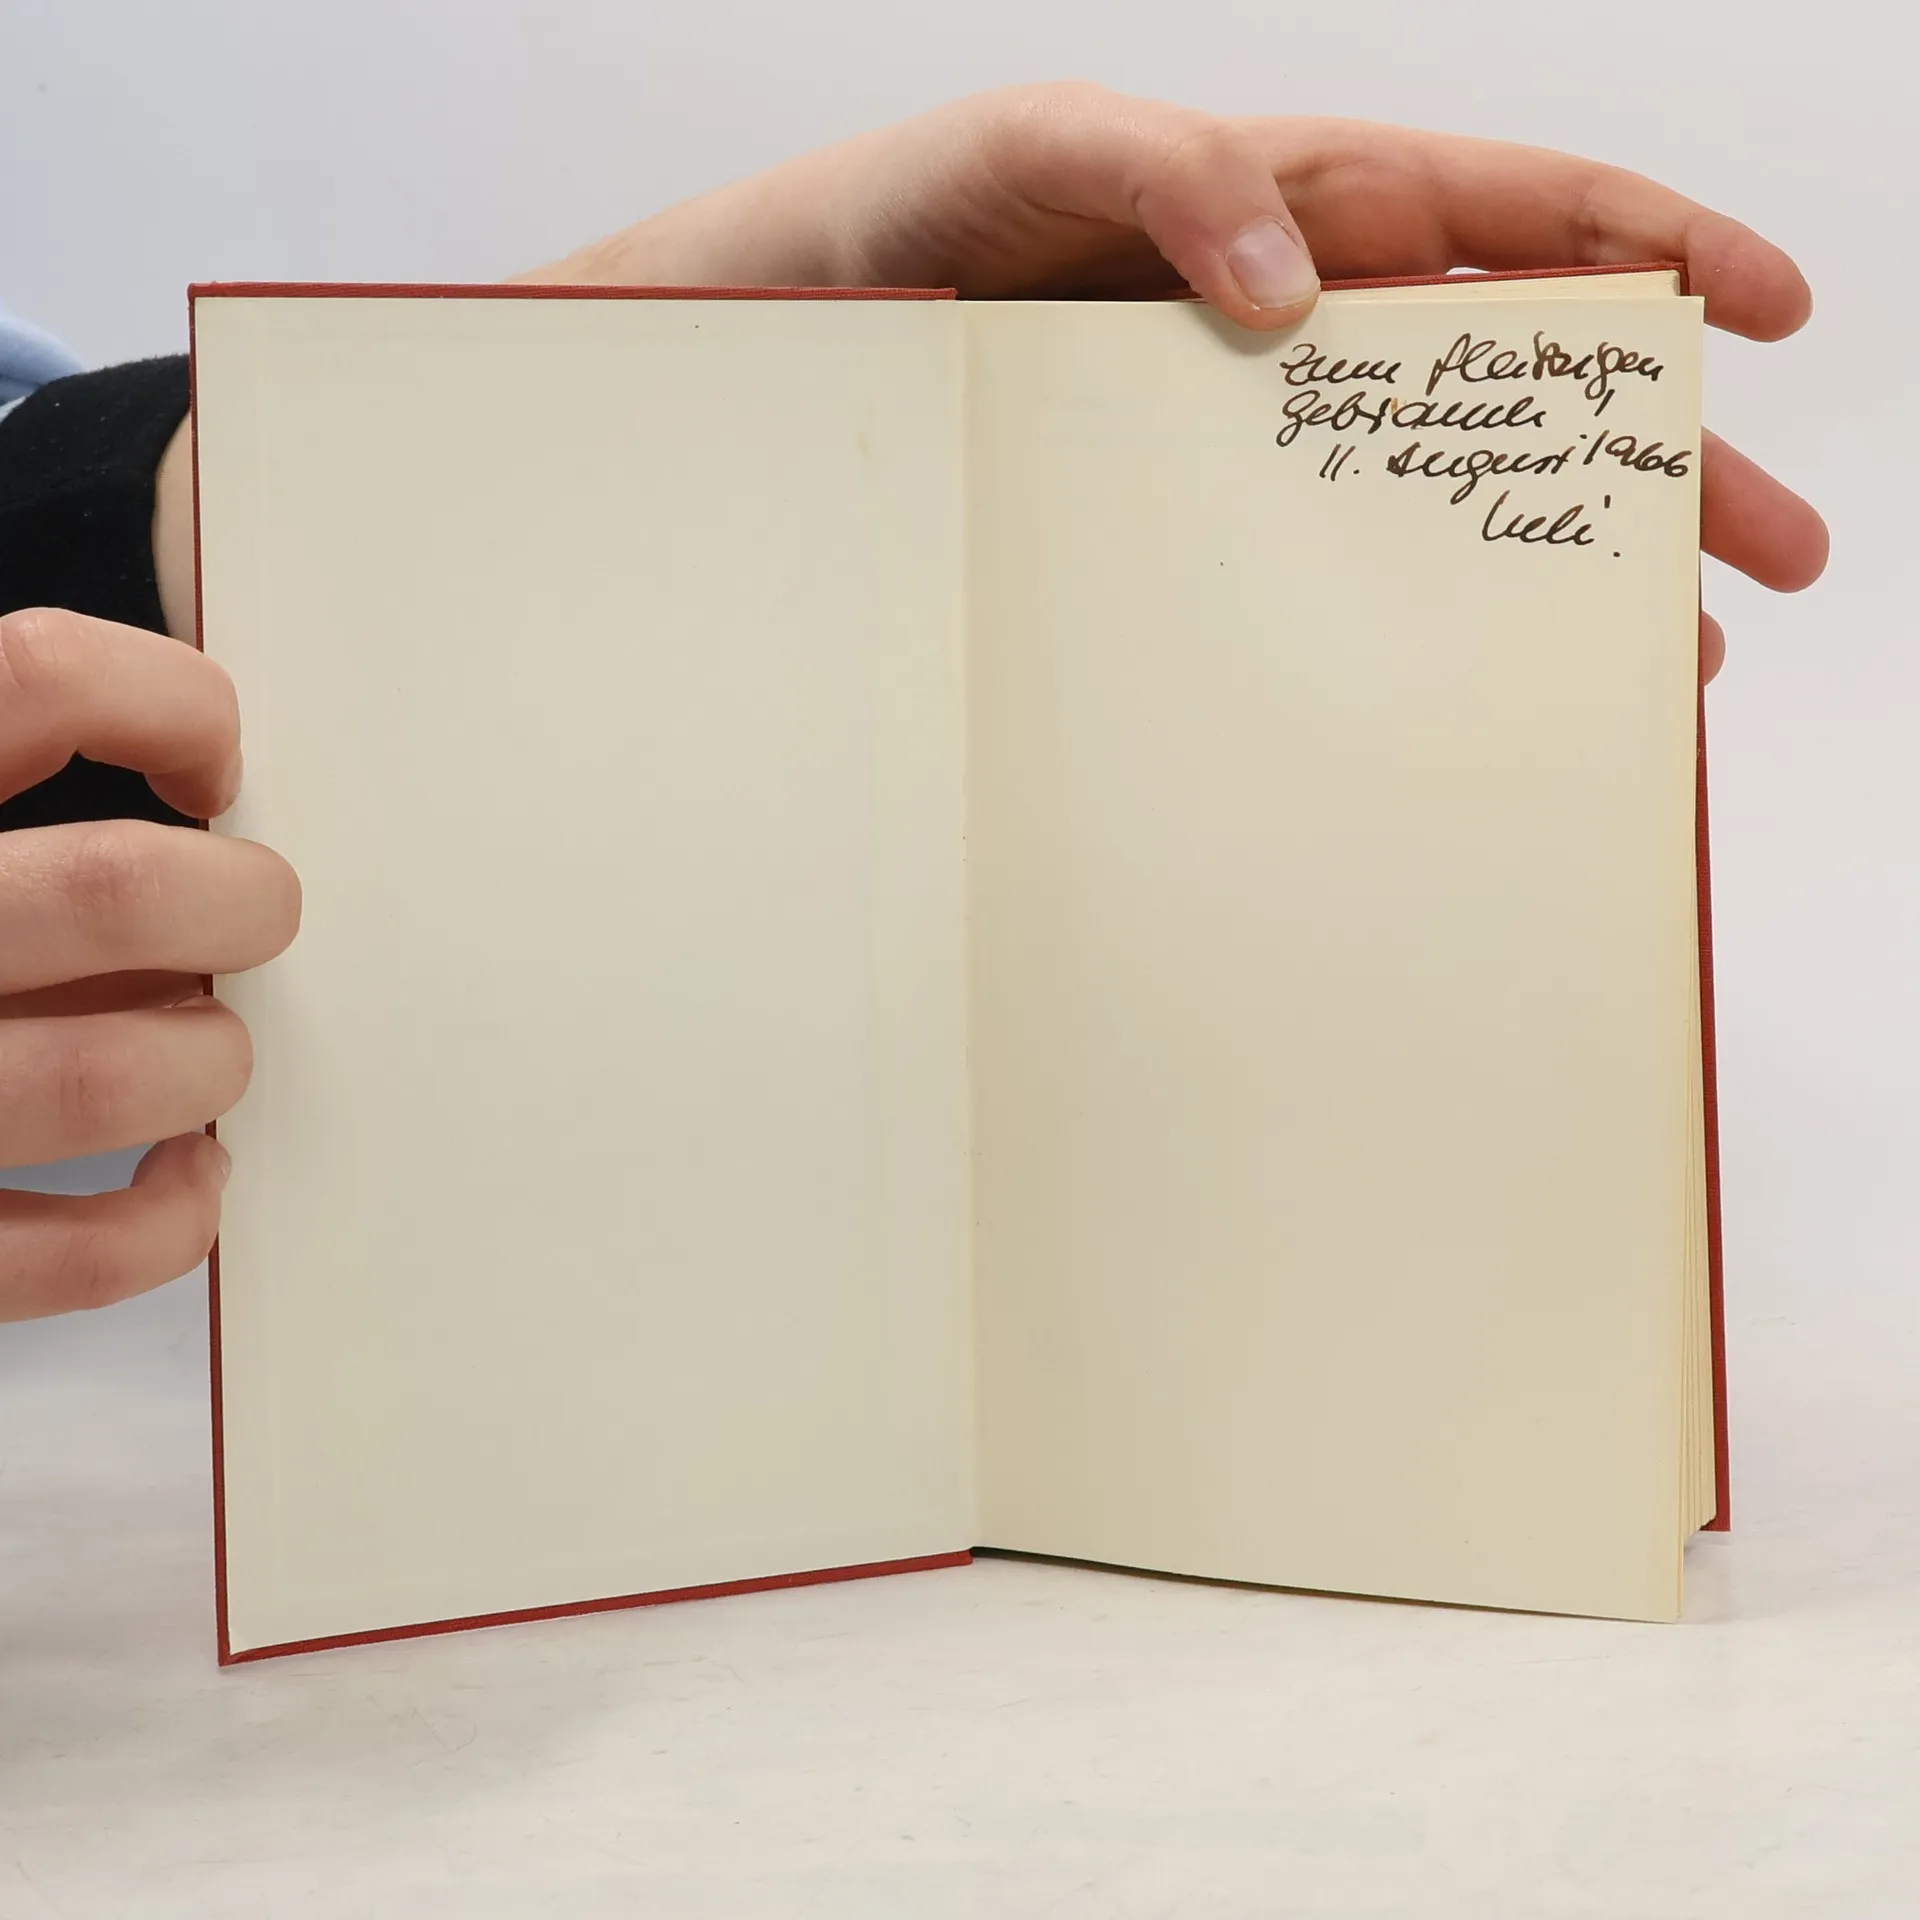 Zum fleißigen
Gebrauch!
11. August 1966
Ueli.